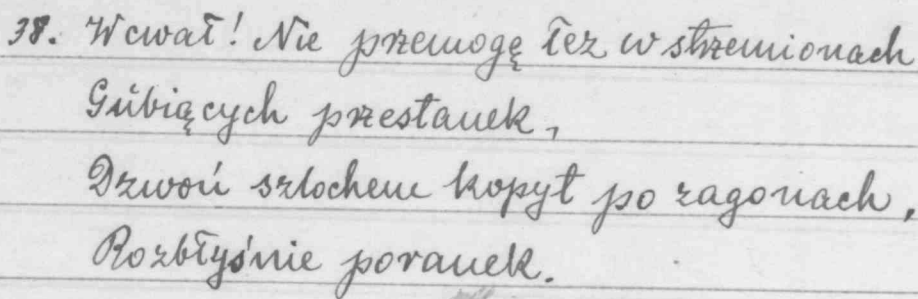 38. W cwał! Nie przemogę łez w strzemionach
Gubiących przestanek,
Dzwoń szlochem kopyt po zagonach,
Rozbłyśnie poranek.